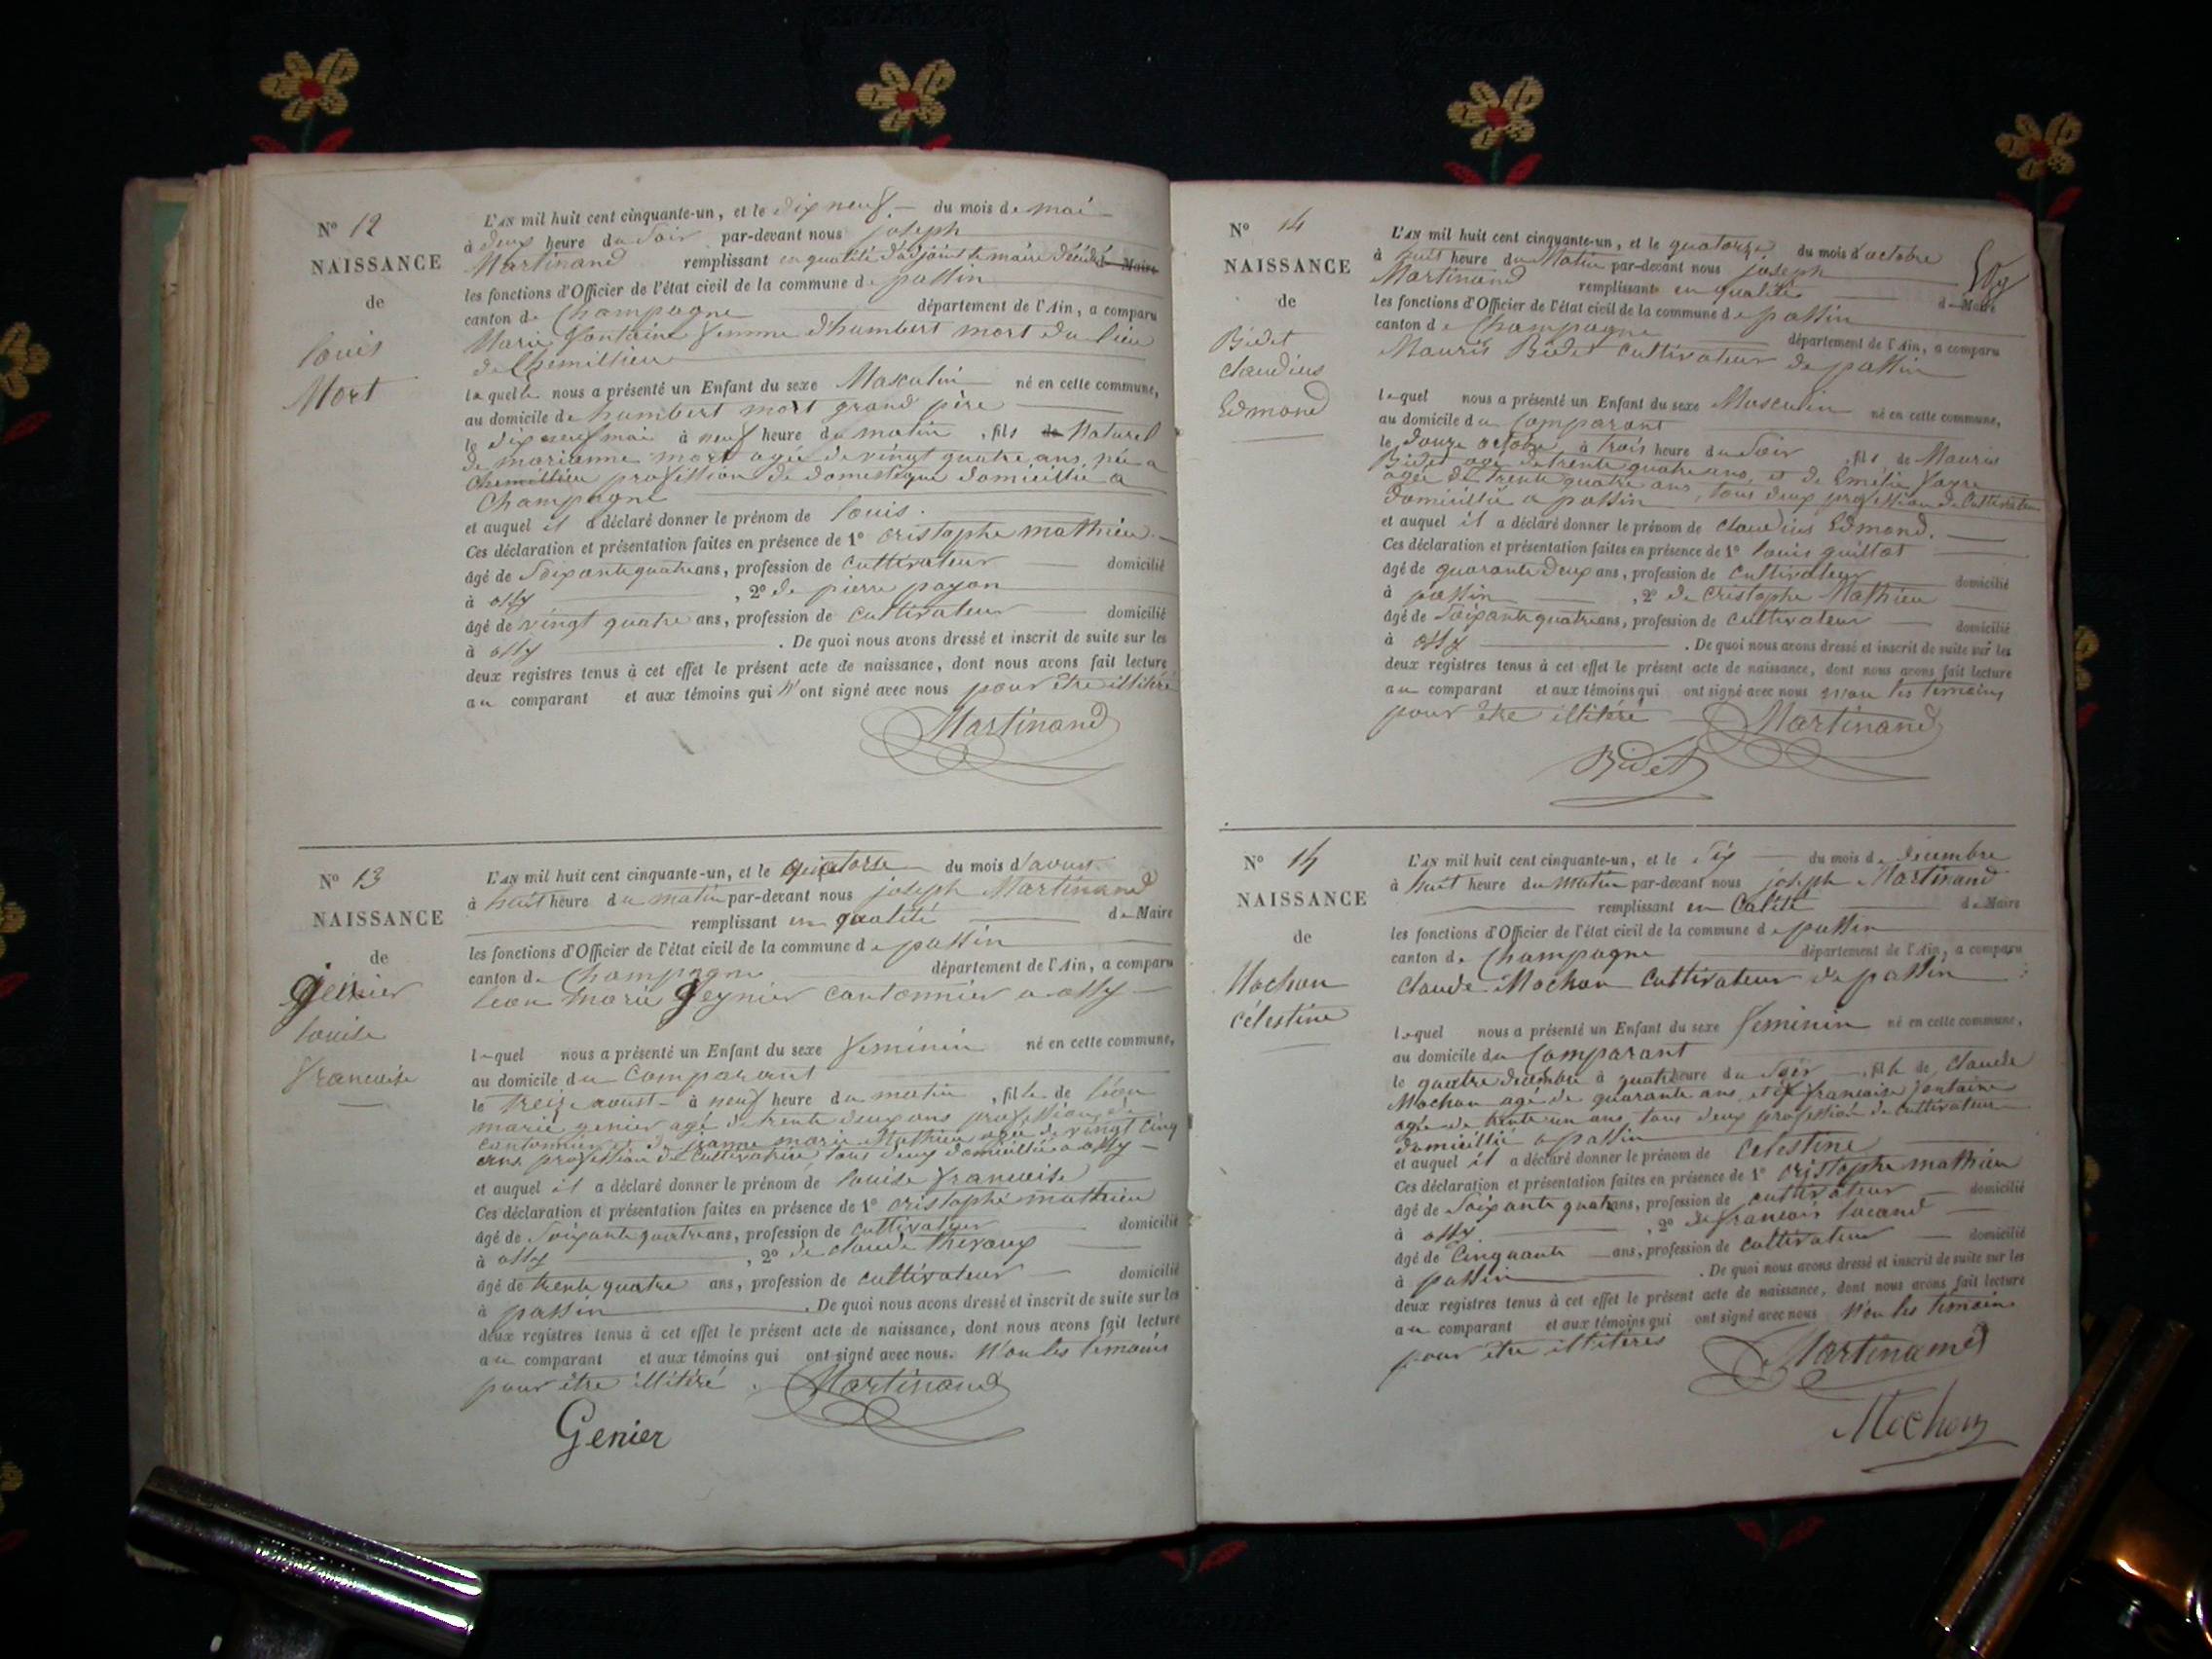 N° 12
NAISSANCE
de
louis
Mort
L'AN mil huit cent cinquante-un, et le dix neuf du mois de mai
à deux heure du Soir par-devant nous joseph
Martinand remplissant en qualité d'adjoint le maire décédé Maire
les fonctions d'Officier de l'état civil de la commune de passin
canton de Champagne département de l'Ain, a comparu
Marie fontaine femme d'humbert mort du lieu
de Chemillieu
laquelle nous a présenté un Enfant du sexe Masculin né en cette commune,
au domicile de humbert mort grand père
le dix neuf mai à neuf heure du matin, fils de Naturel
de marianne mort agée de vingt quatre ans, née a
Chemillieu profession de domestique domicillié a
Champagne
et auquel il a déclaré donner le prénom de louis.
Ces déclaration et présentation faites en présence de 1° cristophe mathieu
âgé de Soixante quatre ans, profession de Cultivateur domicilié
à ossy, 2° de pierre payan
âgé de vingt quatre ans, profession de cultivateur domicilié
à ossy. De quoi nous avons dressé et inscrit de suite sur les
deux registres tenus à cet effet le présent acte de naissance, dont nous avons fait lecture
au comparant et aux témoins qui n'ont signé avec nous pour être illitéré
Martinand
N° 13
NAISSANCE
de
genier
louise
francoise
L'AN mil huit cent cinquante-un, et le quatorse du mois d'aoust
à huit heure du matin par-devant nous joseph Martinand
remplissant en qualité de Maire
les fonctions d'Officier de l'état civil de la commune de passin
canton de Champagne département de l'Ain, a comparu
leon marie geynier cantonnier a ossy
lequel nous a présenté un Enfant du sexe feminin né en cette commune,
au domicile du Comparant
le treize aoust à neuf heure du matin, fille de léon
marie genier agé de trente deux ans profession de
cantonnier et de jeanne marie Mathieu agée de vingt cinq
ans profession de Cultivatrice, tous deux domicillié a ossy
et auquel il a déclaré donner le prénom de louise francoise
Ces déclaration et présentation faites en présence de 1° cristophe mathieu
âgé de Soixante quatre ans, profession de Cultivateur domicilié
à ossy, 2° de claude
âgé de trente quatre ans, profession de cultivateur domicilié
à passin. De quoi nous avons dressé et inscrit de suite sur les
deux registres tenus à cet effet le présent acte de naissance, dont nous avons fait lecture
au comparant et aux témoins qui ont signé avec nous. Non les temoins
pour être illitéré. Martinand
Genier
N° 14
NAISSANCE
de
Bidet
claudius
Edmond
L'AN mil huit cent cinquante-un, et le quatorze du mois d'octobre
à huit heure du Matin par-devant nous joseph
Martinand remplissant en qualité de Maire
les fonctions d'Officier de l'état civil de la commune de passin
canton de Champagne département de l'Ain, a comparu
Mauris Bidet Cultivateur de passin
lequel nous a présenté un Enfant du sexe Masculin né en cette commune,
au domicile du Comparant
le douze octobre à trois heure du Soir, fils de Mauris
Bidet agé de trente quatre ans, et de Emélie
agée de trente quatre ans, tous deux profession de Cultivateur
domicillié a passin
et auquel il a déclaré donner le prénom de claudius Edmond.
Ces déclaration et présentation faites en présence de 1° louis guillot
âgé de quarante deux ans, profession de cultivateur domicilié
à passin, 2° de Cristophe Mathieu
âgé de Soixante quatre ans, profession de Cultivateur domicilié
à ossy. De quoi nous avons dressé et inscrit de suite sur les
deux registres tenus à cet effet le présent acte de naissance, dont nous avons fait lecture
au comparant et aux témoins qui ont signé avec nous non les témoins
pour être illitéré Martinand
Bidet
N° 14
NAISSANCE
de
Mochon
célestine
L'AN mil huit cent cinquante-un, et le Six du mois de decembre
à huit heure du Matin par-devant nous joseph Martinand
remplissant en Calité de Maire
les fonctions d'Officier de l'état civil de la commune de passin
canton de Champagne département de l'Ain, a comparu
claude Mochon Cultivateur de passin
lequel nous a présenté un Enfant du sexe feminin né en cette commune,
au domicile du Comparant
le quatre decembre à quatre heure du Soir, fille de claude
Mochon agé de quarante ans, et de francoise fontaine
agée de trente un ans tous deux profession de cultivateur
domicillié a passin
et auquel il a déclaré donner le prénom de Celestine
Ces déclaration et présentation faites en présence de 1° cristophe mathieu
âgé de Soixante quatre ans, profession de cultivateur domicilié
à ossy, 2° de francois lucand
âgé de Cinquante ans, profession de cultivateur domicilié
à passin. De quoi nous avons dressé et inscrit de suite sur les
deux registres tenus à cet effet le présent acte de naissance, dont nous avons fait lecture
au comparant et aux témoins qui ont signé avec nous Non les temoins
pour être illitérés Martinand
Mochon